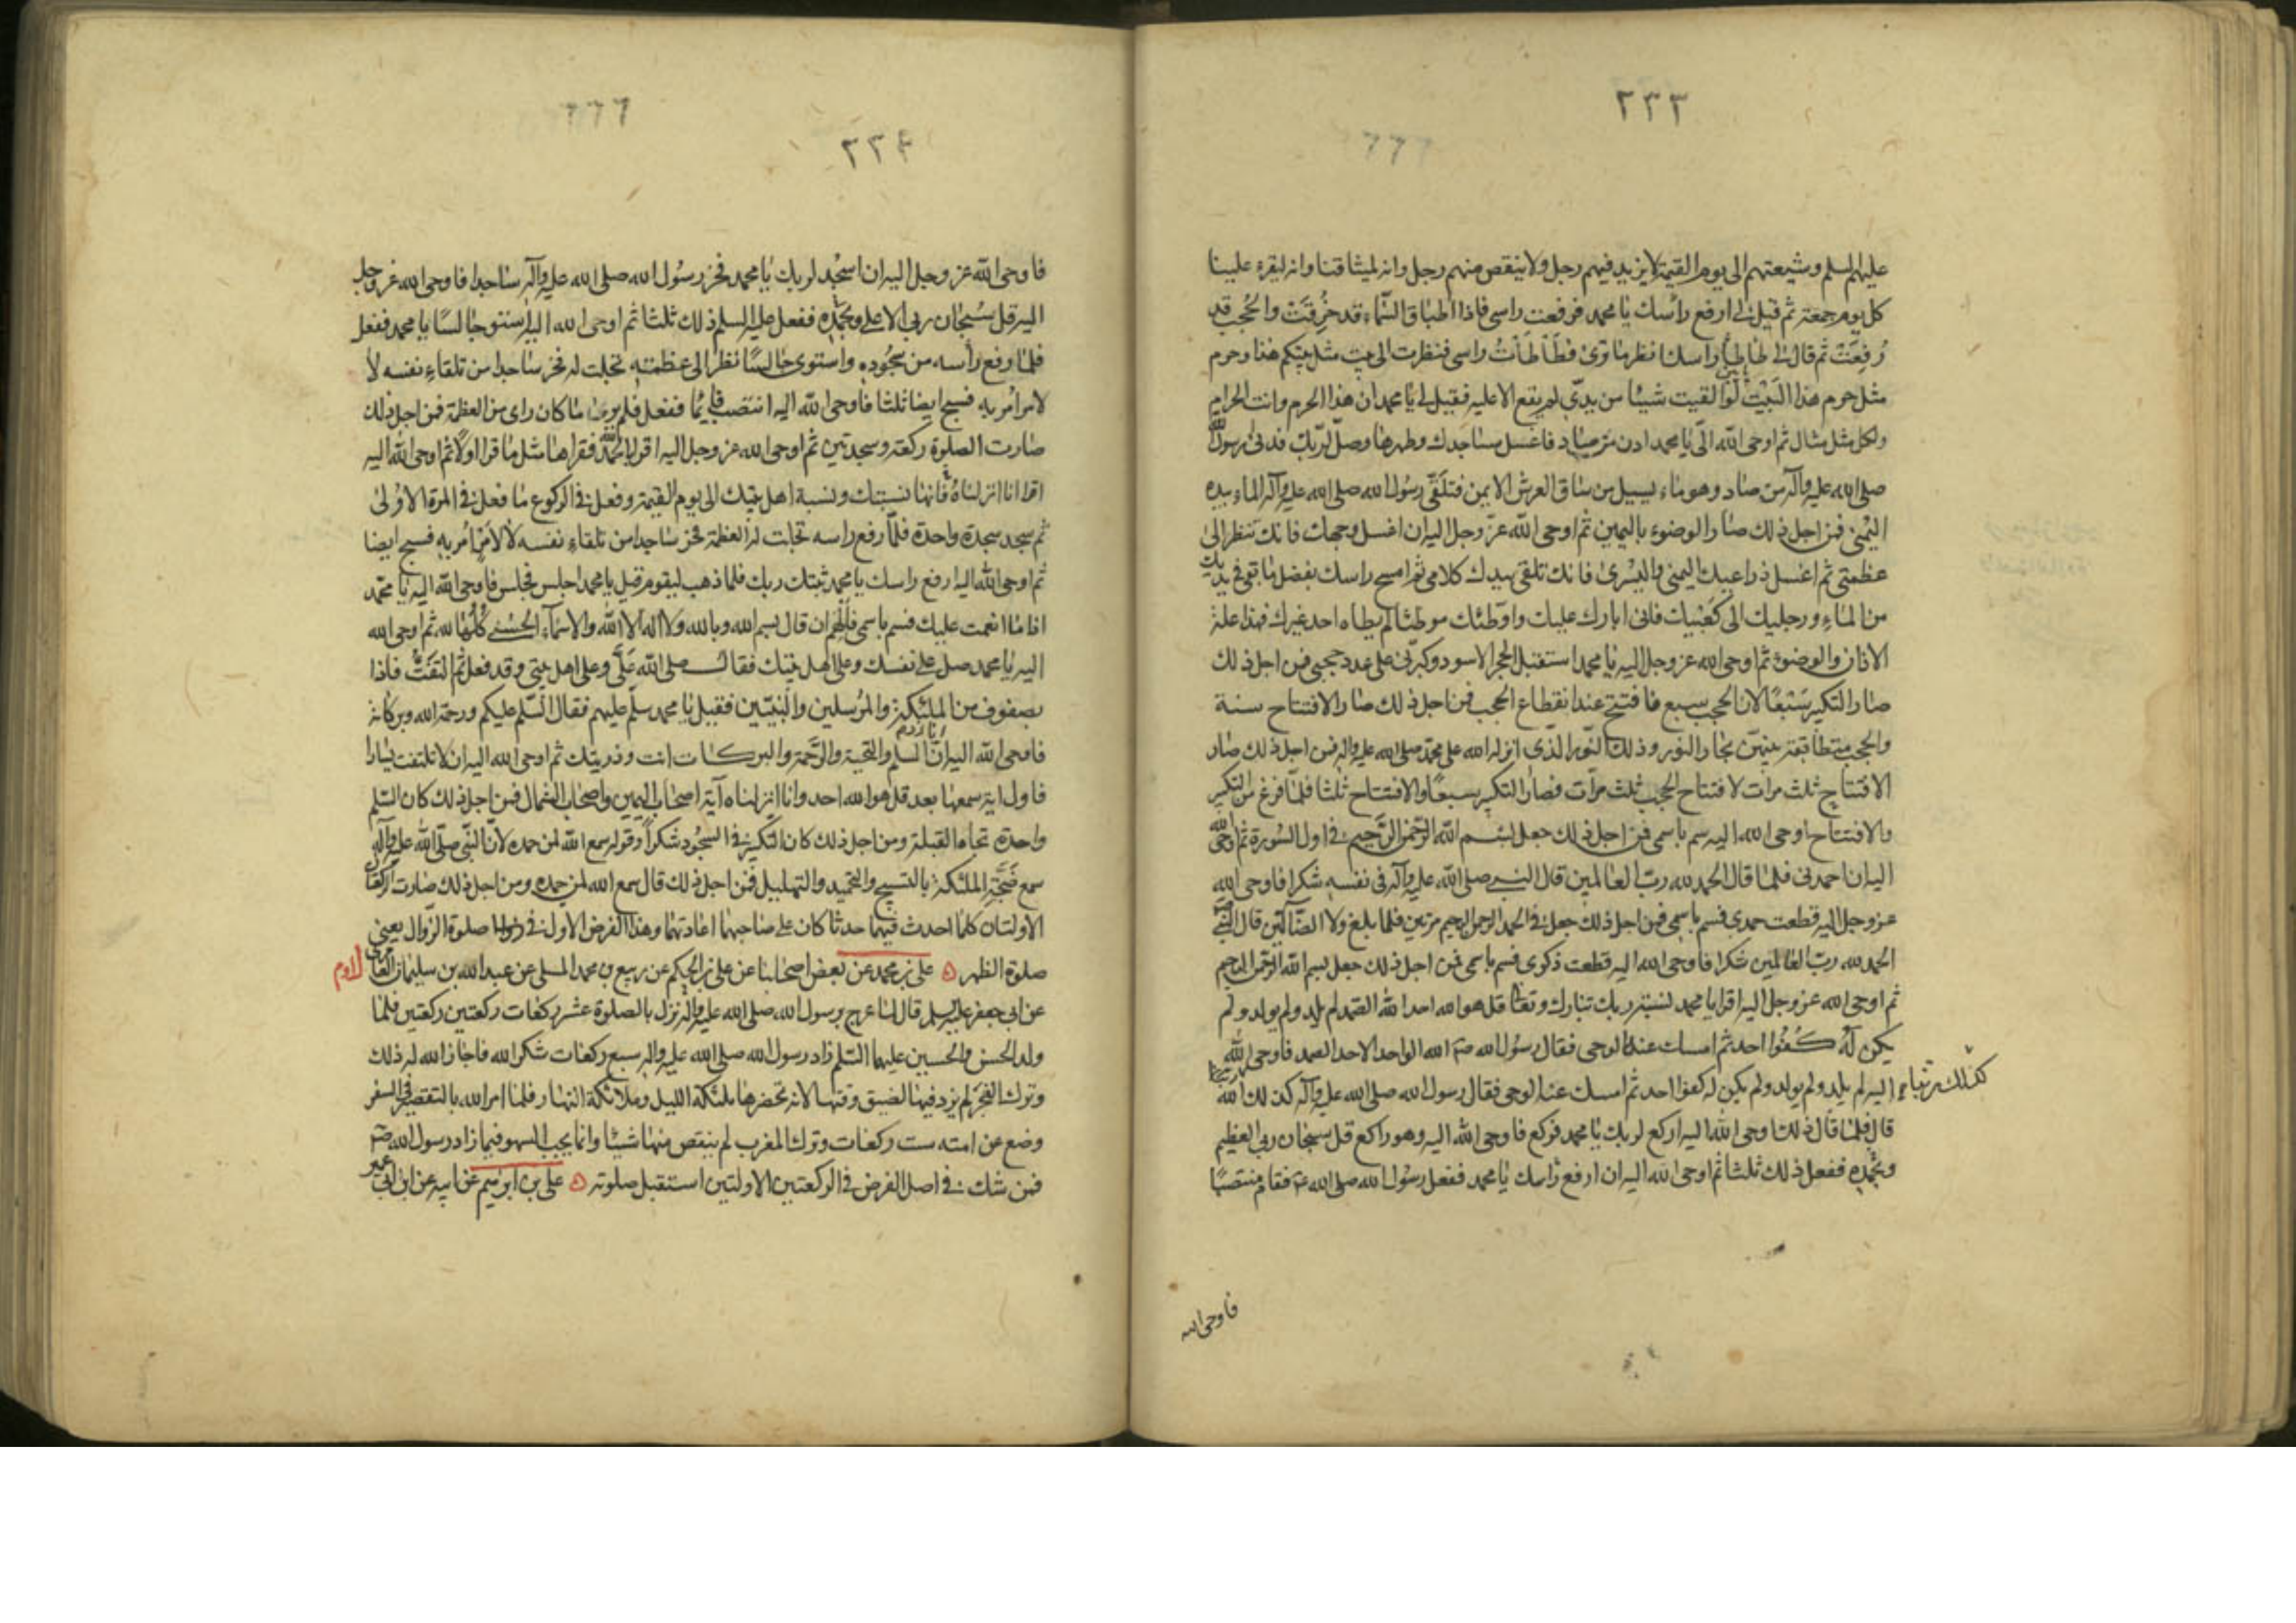 ٢٣٣
عليهم السلم وشيعتهم الى يوم القيمة لا يزيد فيهم رجل ولا ينقص منهم رجل وانه لميثاقنا وانه ليقرء علينا
كل يوم جمعة ثم قيل لى ارفع رأسك يا محمد فرفعت راسى فاذا اطباق السماء قد خرقت والحجب قد
رفعت ثم قال لى طأطأ راسك انظر ما ترى فطأطأت راسى فنظرت الى بيت مثل بيتكم هذا وحرم
مثل حرم هذا البيت لو القيت شيئا من يدى لم يقع الا عليه فقيل لى يا محمد ان هذا الحرم وانت الحرام
ولكل مثل مثال ثم اوحى الله الى يا محمد ادن من صاد فاغسل مساجدك وطهرها وصل لربك فدنى رسول الله
صلى الله عليه وآله من صاد وهو ماء يسيل من ساق العرش الايمن فتلقى رسول الله صلى الله عليه وآله الماء بيده
اليمنى فمن اجل ذلك صار الوضوء باليمين ثم اوحى الله عز وجل اليه ان اغسل وجهك فانك تنظر الى
عظمتى ثم اغسل ذراعيك اليمنى واليسرى فانك تلقى بيدك كلامى ثم امسح راسك بفضل ما بقى فى يديك
من الماء ورجليك الى كعبيك فانى ابارك عليك واوطئك موطئا لم يطاه احد غيرك فهذا علة
الاذان والوضوء ثم اوحى الله عز وجل اليه يا محمد استقبل الحجر الاسود وكبرنى على عدد حجبى فمن اجل ذلك
صار التكبير سبعا لان الحجب سبع فافتتح عند انقطاع الحجب فمن اجل ذلك صار الافتتاح سنة
والحجب متطابقة بينهن بحار النور وذلك النور الذى انزله الله على محمد صلى الله عليه وآله فمن اجل ذلك صار
الافتتاح ثلث مرات لافتتاح الحجب ثلث مرات فصار التكبير سبعا والافتتاح ثلثا فلما فرغ من التكبير
والافتتاح اوحى الله اليه سم باسمى فمن اجل ذلك جعل بسم الله الرحمن الرحيم فى اول السورة ثم اوحى الله
اليه ان احمدنى فلما قال الحمد لله رب العالمين قال النبى صلى الله عليه وآله فى نفسه شكرا فاوحى الله
عز وجل اليه قطعت حمدى فسم باسمى فمن اجل ذلك جعل فى الحمد الرحمن الرحيم مرتين فلما بلغ ولا الضالين قال النبى
الحمد لله رب العالمين شكرا فاوحى الله اليه قطعت ذكرى فسم باسمى فمن اجل ذلك جعل بسم الله الرحمن الرحيم
ثم اوحى الله عز وجل اليه اقرا يا محمد نسبة ربك تبارك وتعالى قل هو الله احد الله الصمد لم يلد ولم يولد ولم
يكن له كفوا احد ثم امسك عنه الوحى فقال رسول الله الله الواحد الاحد الصمد فاوحى الله
اليه لم يلد ولم يولد ولم يكن له كفوا احد ثم امسك عنه الوحى فقال رسول الله صلى الله عليه وآله كذلك الله
قال فلما قال ذلك اوحى الله اليه اركع لربك يا محمد فركع فاوحى الله اليه وهو راكع قل سبحان ربى العظيم
وبحمده ففعل ذلك ثلثا ثم اوحى الله اليه ان ارفع رأسك يا محمد ففعل رسول الله صلى الله عليه فقام منتصبا
فاوحى الله
٢٣٤
فاوحى الله عز وجل اليه ان اسجد لربك يا محمد فخر رسول الله صلى الله عليه وآله ساجدا فاوحى الله عز وجل
اليه قل سبحان ربى الاعلى وبحمده ففعل عليه السلم ذلك ثلثا ثم اوحى الله اليه استو جالسا يا محمد ففعل
فلما رفع رأسه من سجوده واستوى جالسا نظر الى عظمته تجلت له فخر ساجدا من تلقاء نفسه لا
لامر امر به فسبح ايضا ثلثا فاوحى الله اليه انتصب قائما ففعل فلم ير ما كان راى من العظمة فمن اجل ذلك
صارت الصلوة ركعة وسجدتين ثم اوحى الله عز وجل اليه اقرا بالحمد لله فقراها مثل ما قرا اولا ثم اوحى الله اليه
اقرا انا انزلناه فانها نسبتك ونسبة اهل بيتك الى يوم القيمة وفعل فى الركوع ما فعل فى المرة الاولى
ثم سجد سجدة واحدة فلما رفع راسه تجلت له العظمة فخر ساجدا من تلقاء نفسه لا لامر امر به فسبح ايضا
ثم اوحى الله اليه ارفع راسك يا محمد ثبتك ربك فلما ذهب ليقوم قيل يا محمد اجلس فجلس فاوحى الله اليه يا محمد
اذا ما انعمت عليك فسم باسمى فالهم ان قال بسم الله وبالله ولا اله الا الله والاسماء الحسنى كلها لله ثم اوحى الله
اليه يا محمد صل على نفسك وعلى اهل بيتك فقال صلى الله على وعلى اهل بيتى وقد فعل ثم التفت فاذا
بصفوف من الملئكة والمرسلين والنبيين فقيل يا محمد سلم عليهم فقال السلم عليكم ورحمة الله وبركاته
فاوحى الله اليه ان السلم والتحية والرحمة والبركات انت وذريتك ثم اوحى الله اليه ان لا تلتفت يسارا
فاول اية سمعها بعد قل هو الله احد وانا انزلناه آية اصحاب اليمين واصحاب الشمال فمن اجل ذلك كان السلم
واحدة تجاه القبلة ومن اجل ذلك كان التكبير فى السجود شكرا وقوله سمع الله لمن حمده لان النبى صلى الله عليه وآله
سمع ضجة الملئكة بالتسبيح والتحميد والتهليل فمن اجل ذلك قال سمع الله لمن حمده ومن اجل ذلك صارت الركعتان
الاولتان كلما احدث فيهما حدثا كان على صاحبهما اعادتهما وهذا الفرض الاول فى صلوة الزوال يعنى
صلوة الظهر ه على بن محمد عن بعض اصحابنا عن على بن الحكم عن ربيع بن محمد المسلى عن عبد الله بن سليمان العامرى
عن ابى جعفر عليه السلم قال لما عرج برسول الله صلى الله عليه وآله نزل بالصلوة عشر ركعات ركعتين ركعتين فلما
ولد الحسن والحسين عليهما السلم زاد رسول الله صلى الله عليه وآله سبع ركعات شكرا لله فاجاز الله له ذلك
وترك الفجر لم يزد فيها لضيق وقتها لانه تحضرها ملئكة الليل وملائكة النهار فلما امر الله بالتقصير فى السفر
وضع عن امته ست ركعات وترك المغرب لم ينقص منها شيئا وانما يجب السهو فيما زاد رسول الله
فمن شك فى اصل الفرض فى الركعتين الاولتين استقبل صلوته ه على بن ابرهيم عن ابيه عن ابن ابى عمير